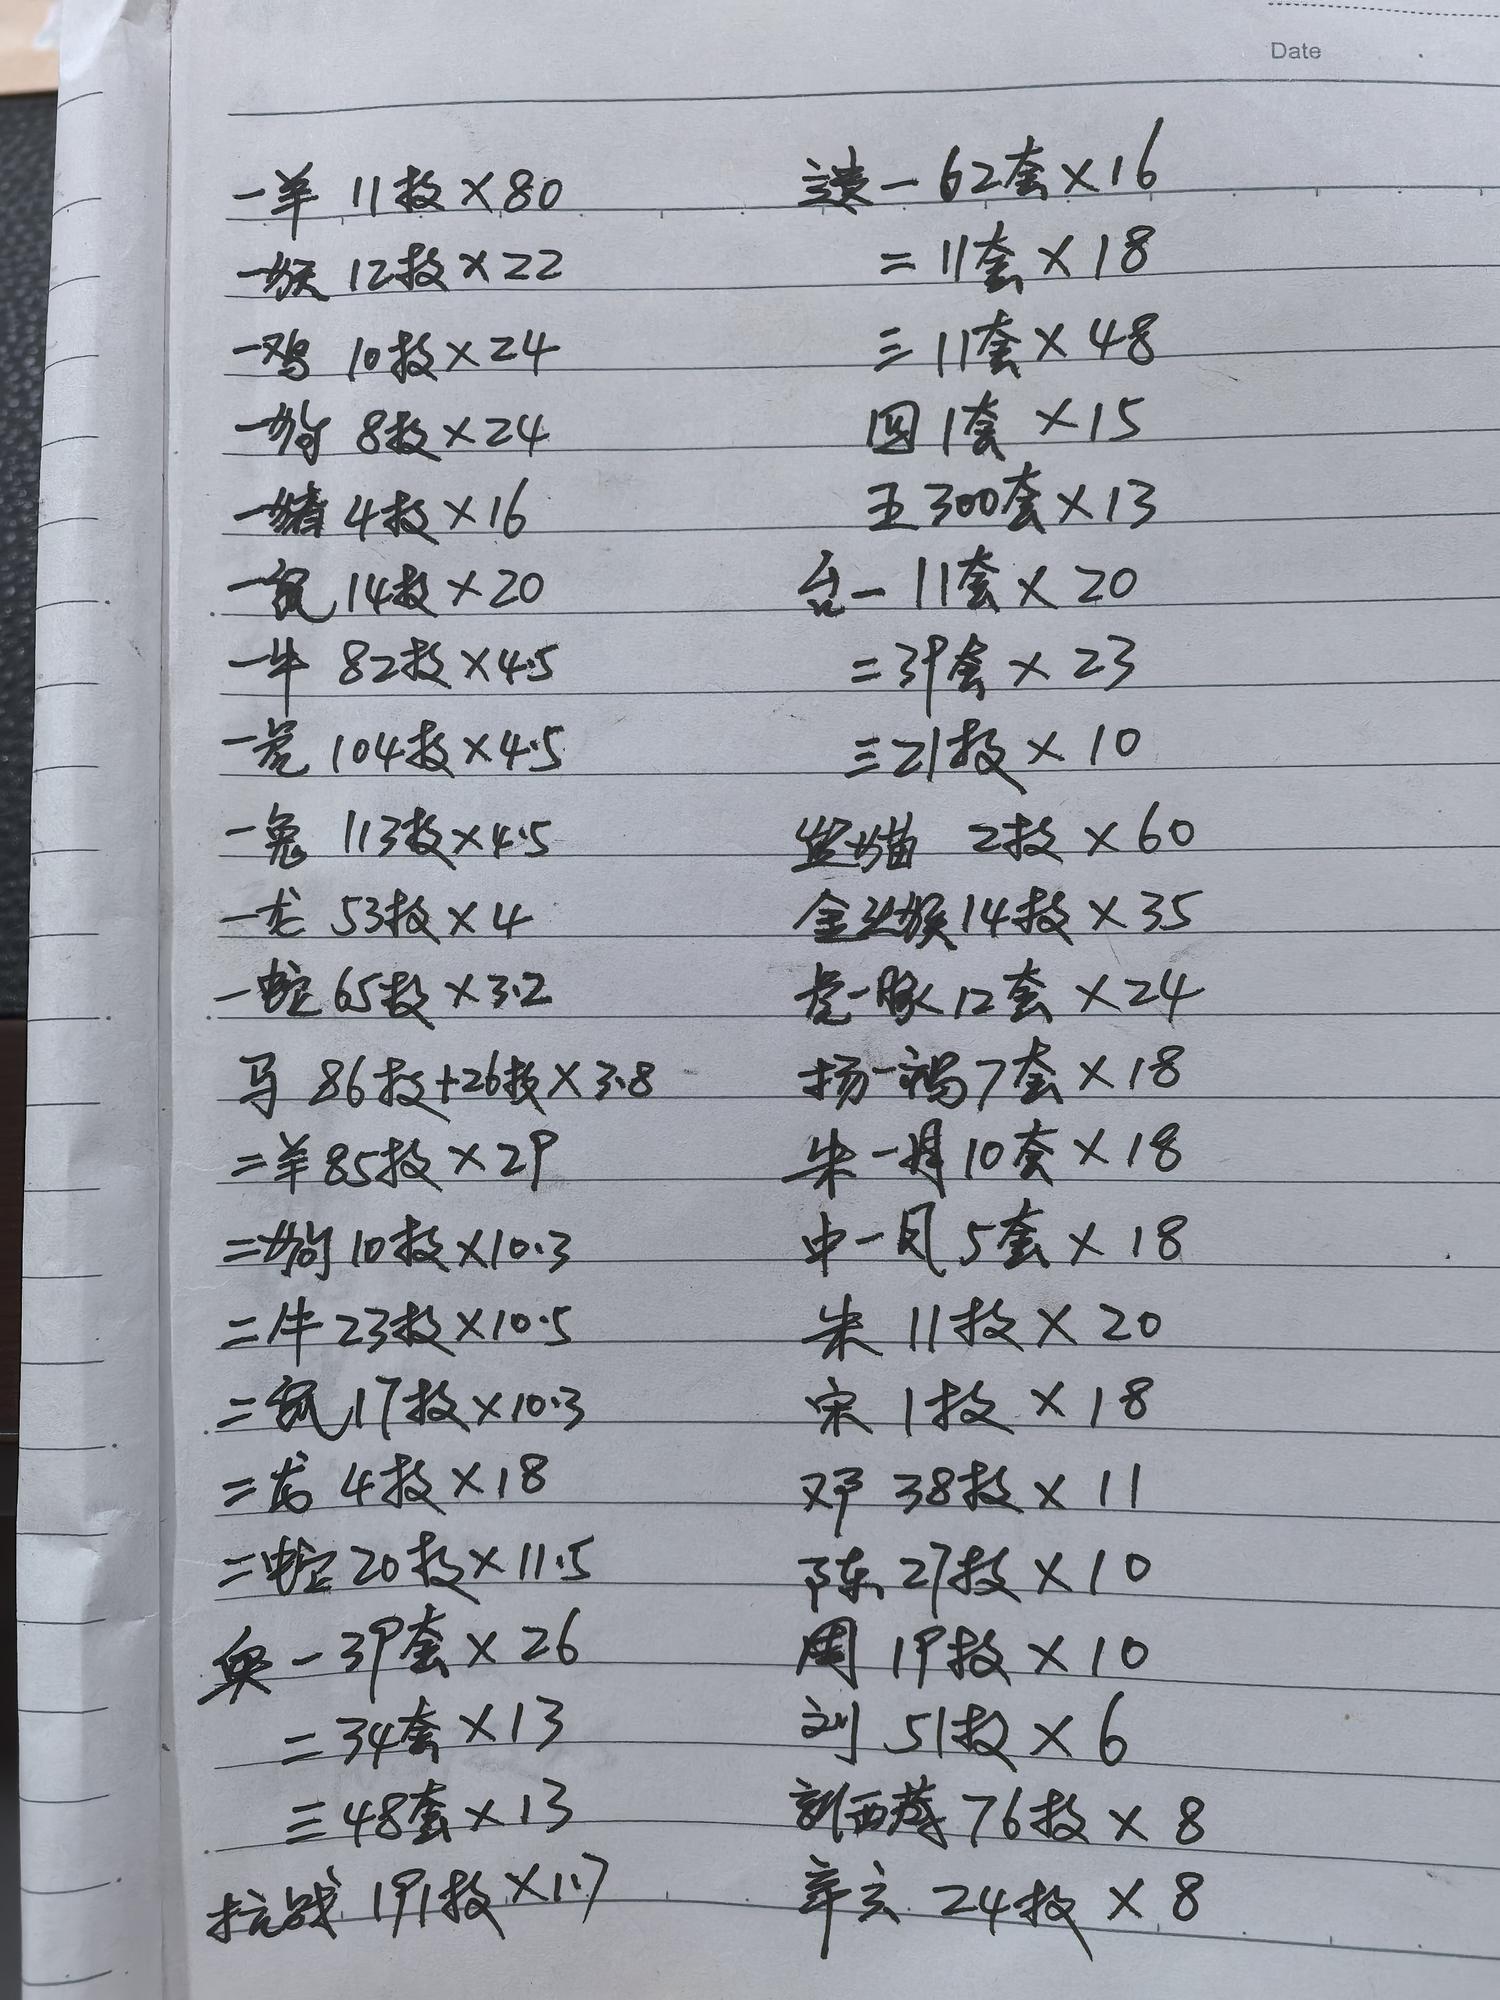 Date
一羊 11枚×80
一猴 12枚×22
一鸡 10枚×24
一狗 8枚×24
一猪 4枚×16
一鼠 14枚×20
一牛 82枚×4.5
一虎 104枚×4.5
一兔 113枚×4.5
一龙 53枚×4
一蛇 65枚×3.2
马 86枚+26枚×3.8
二羊 85枚×29
二狗 10枚×10.3
二牛 23枚×10.5
二鼠 17枚×10.3
二龙 4枚×18
二蛇 20枚×11.5
奥一 39套×26
二 34套×13
三 48套×13
抗战 191枚×1.7
遗一 62套×16
二 11套×18
三 11套×48
四 1套×15
五 300套×13
台一 11套×20
二 39套×23
三 21枚×10
熊猫 2枚×60
金丝猴 14枚×35
虎一豚 12套×24
扬一褐 7套×18
朱一 10套×18
中一凤 5套×18
朱 11枚×20
宋 1枚×18
邓 38枚×11
陈 27枚×10
周 19枚×10
刘 51枚×6
新西藏 76枚×8
辛亥 24枚×8